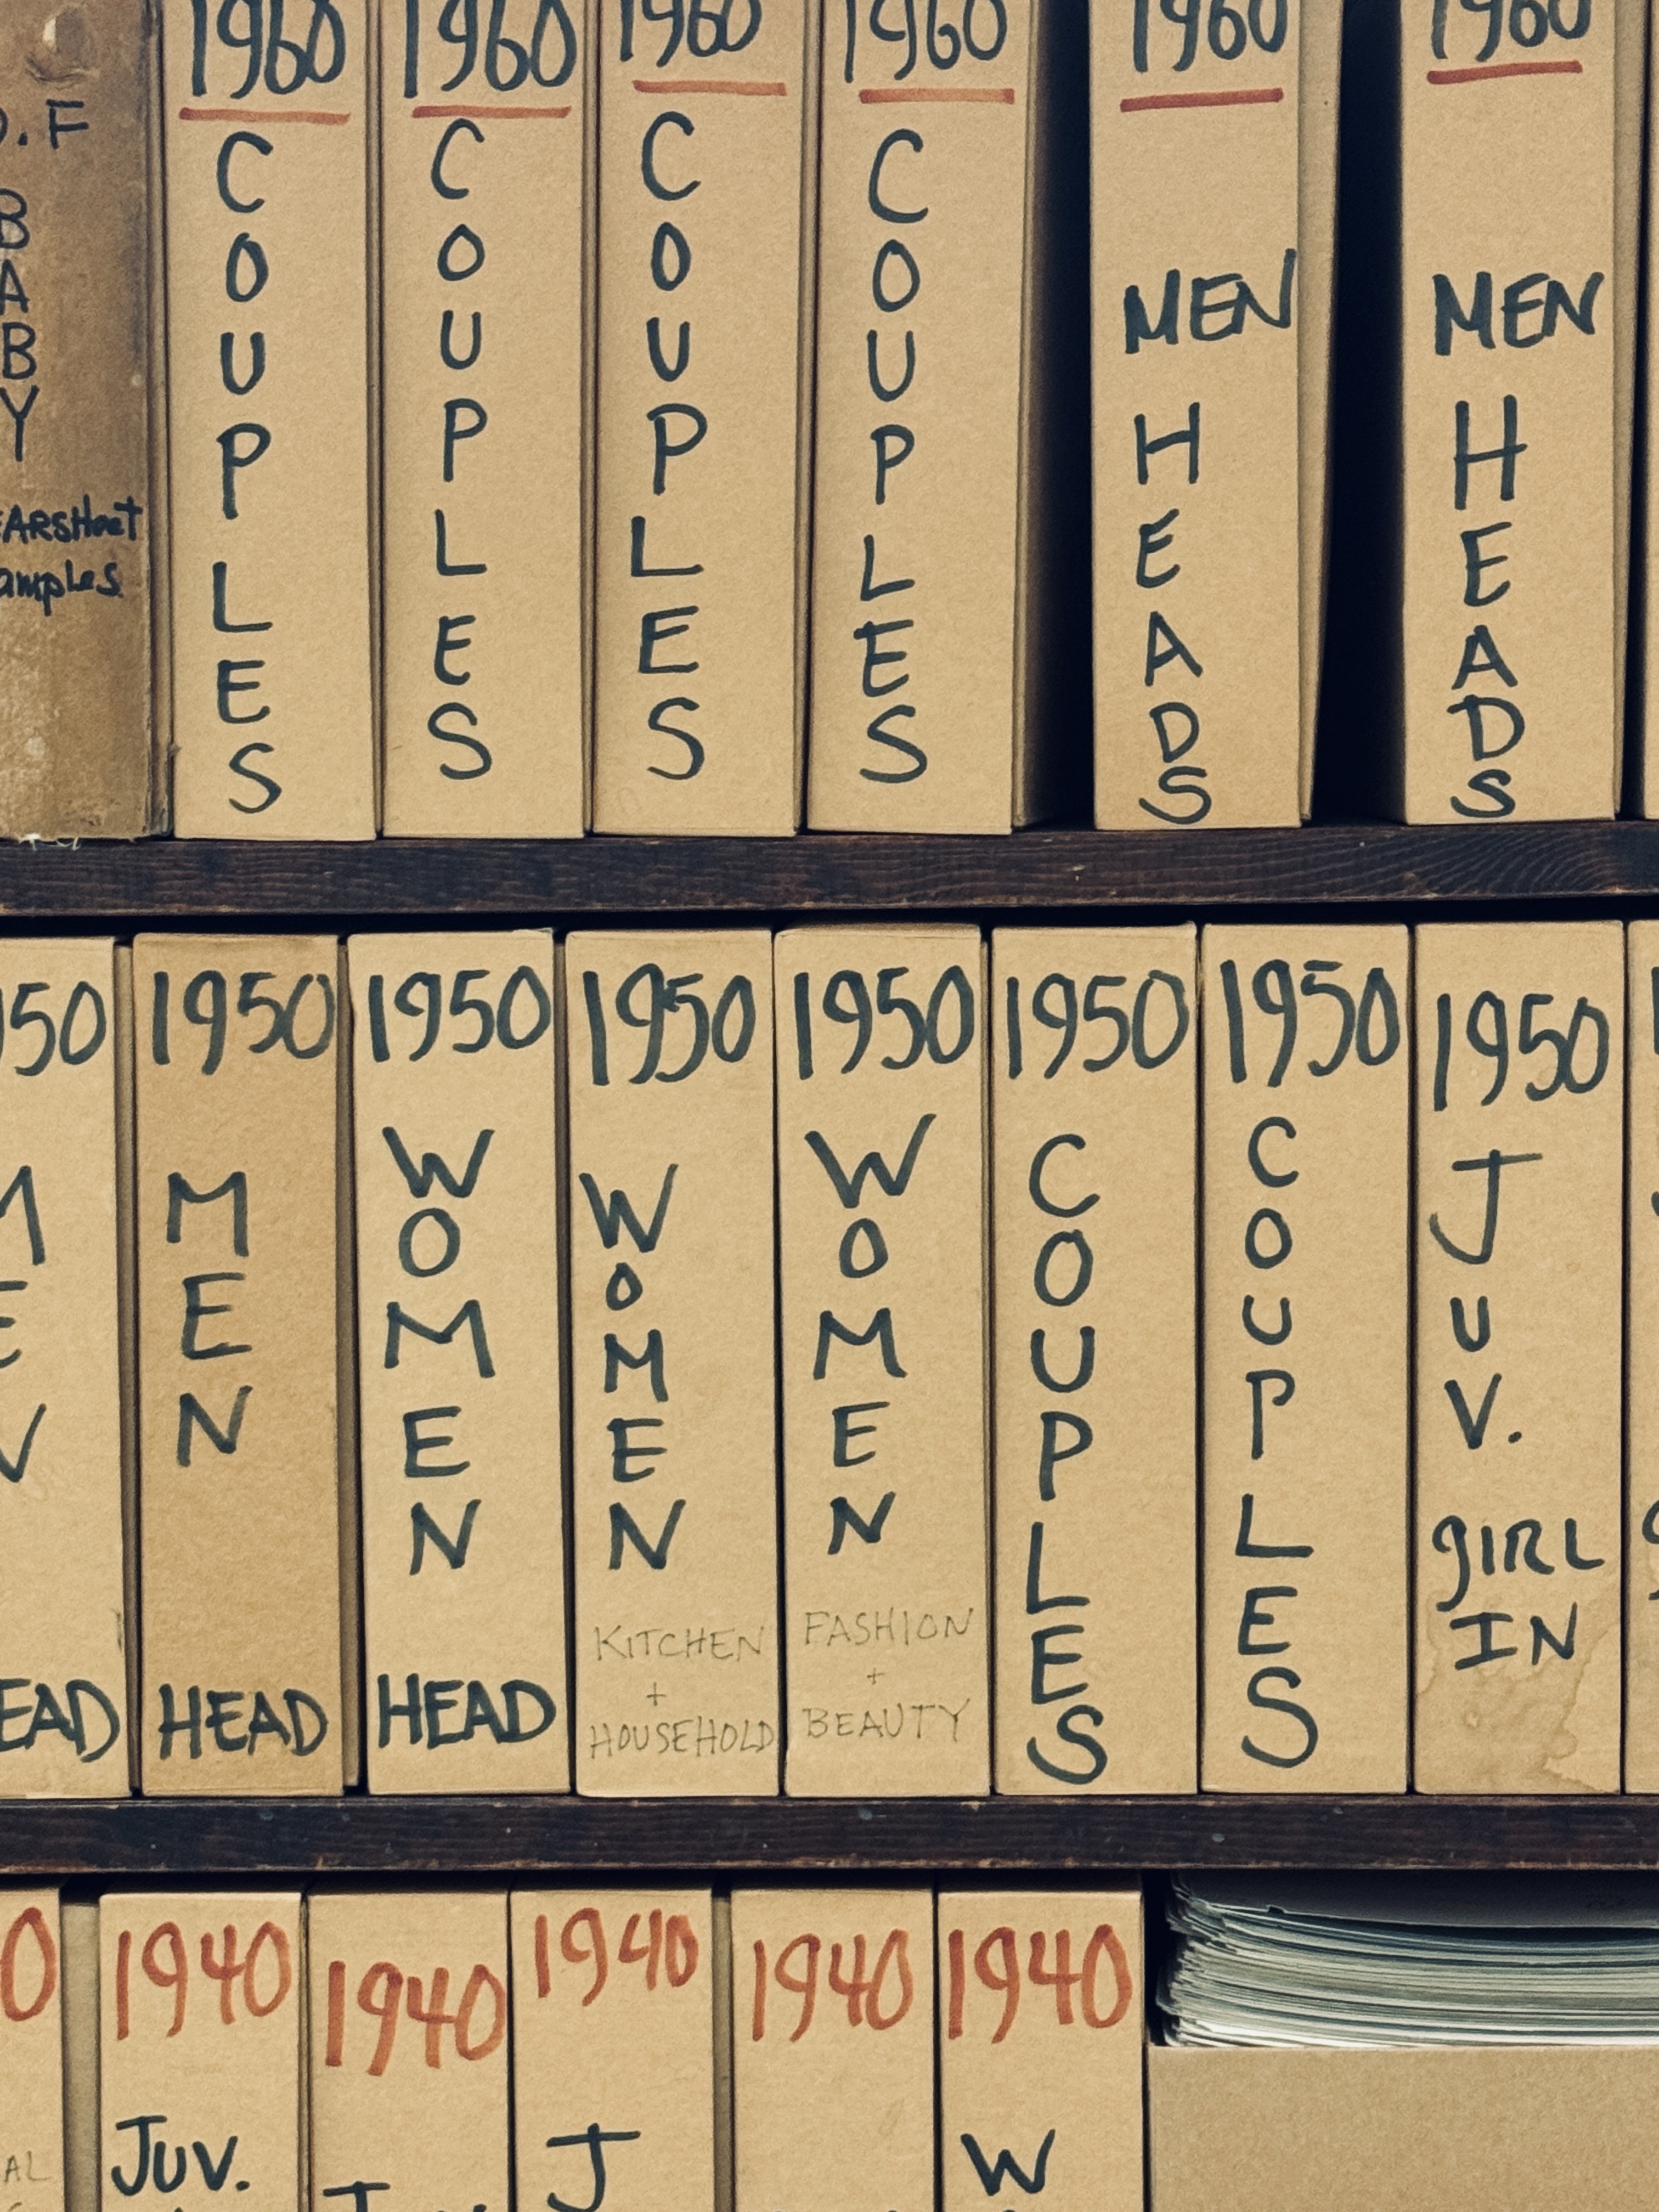 .F
BABY
amples
1960
COUPLES
1960
COUPLES
1960
COUPLES
1960
COUPLES
1960
MEN
HEADS
1960
MEN
HEADS
50
MEN
EAD
1950
MEN
HEAD
1950
WOMEN
HEAD
1950
WOMEN
KITCHEN
+
HOUSEHOLD
1950
WOMEN
FASHION
+
BEAUTY
1950
COUPLES
1950
COUPLES
1950
JUV.
GIRL
IN
0
AL
1940
JUV.
1940
1940
J
1940
1940
W